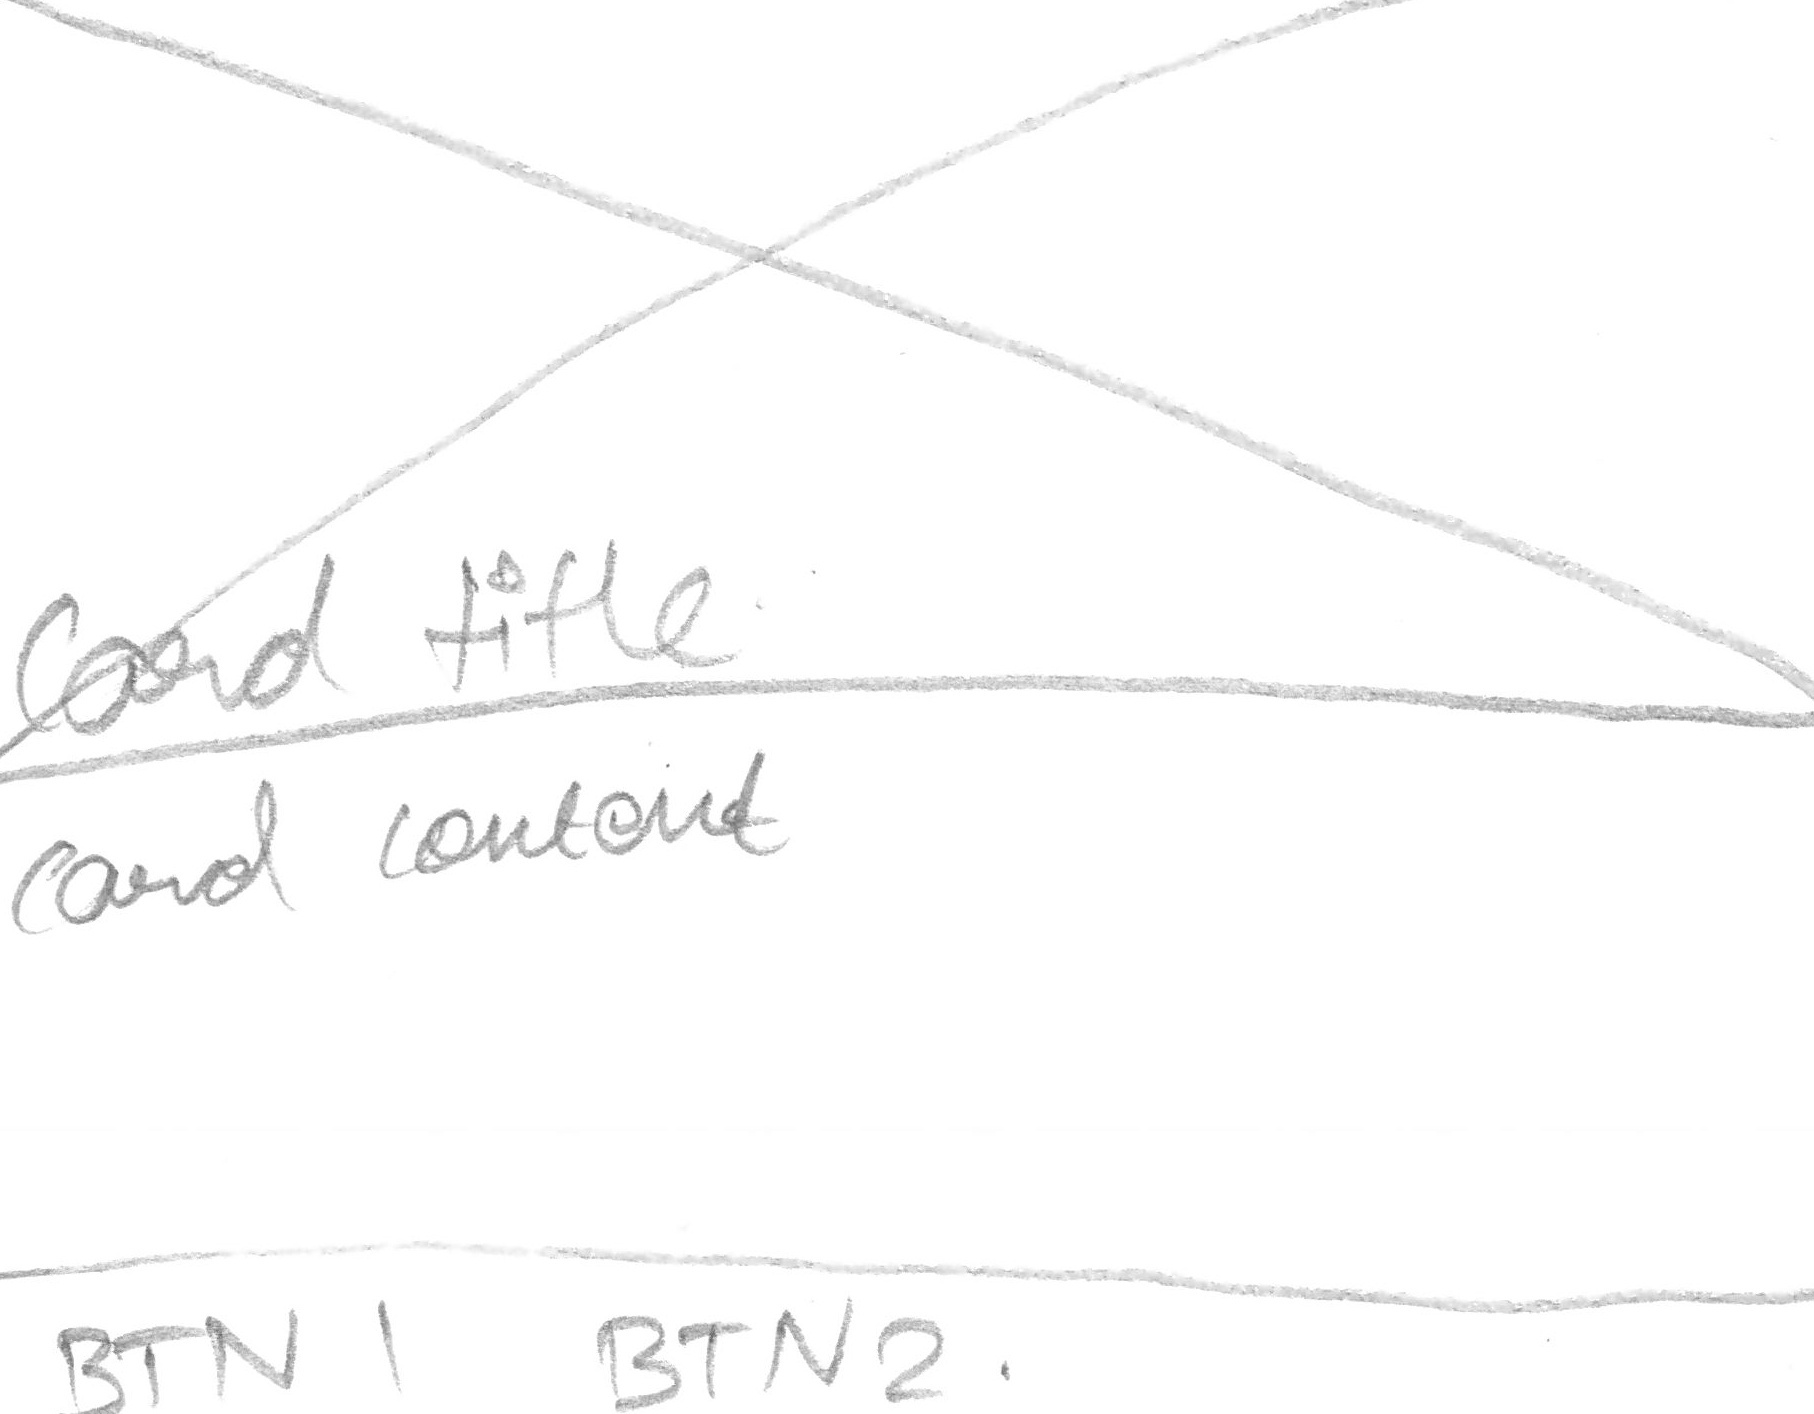 Card title
card content
BTN 1 BTN 2.